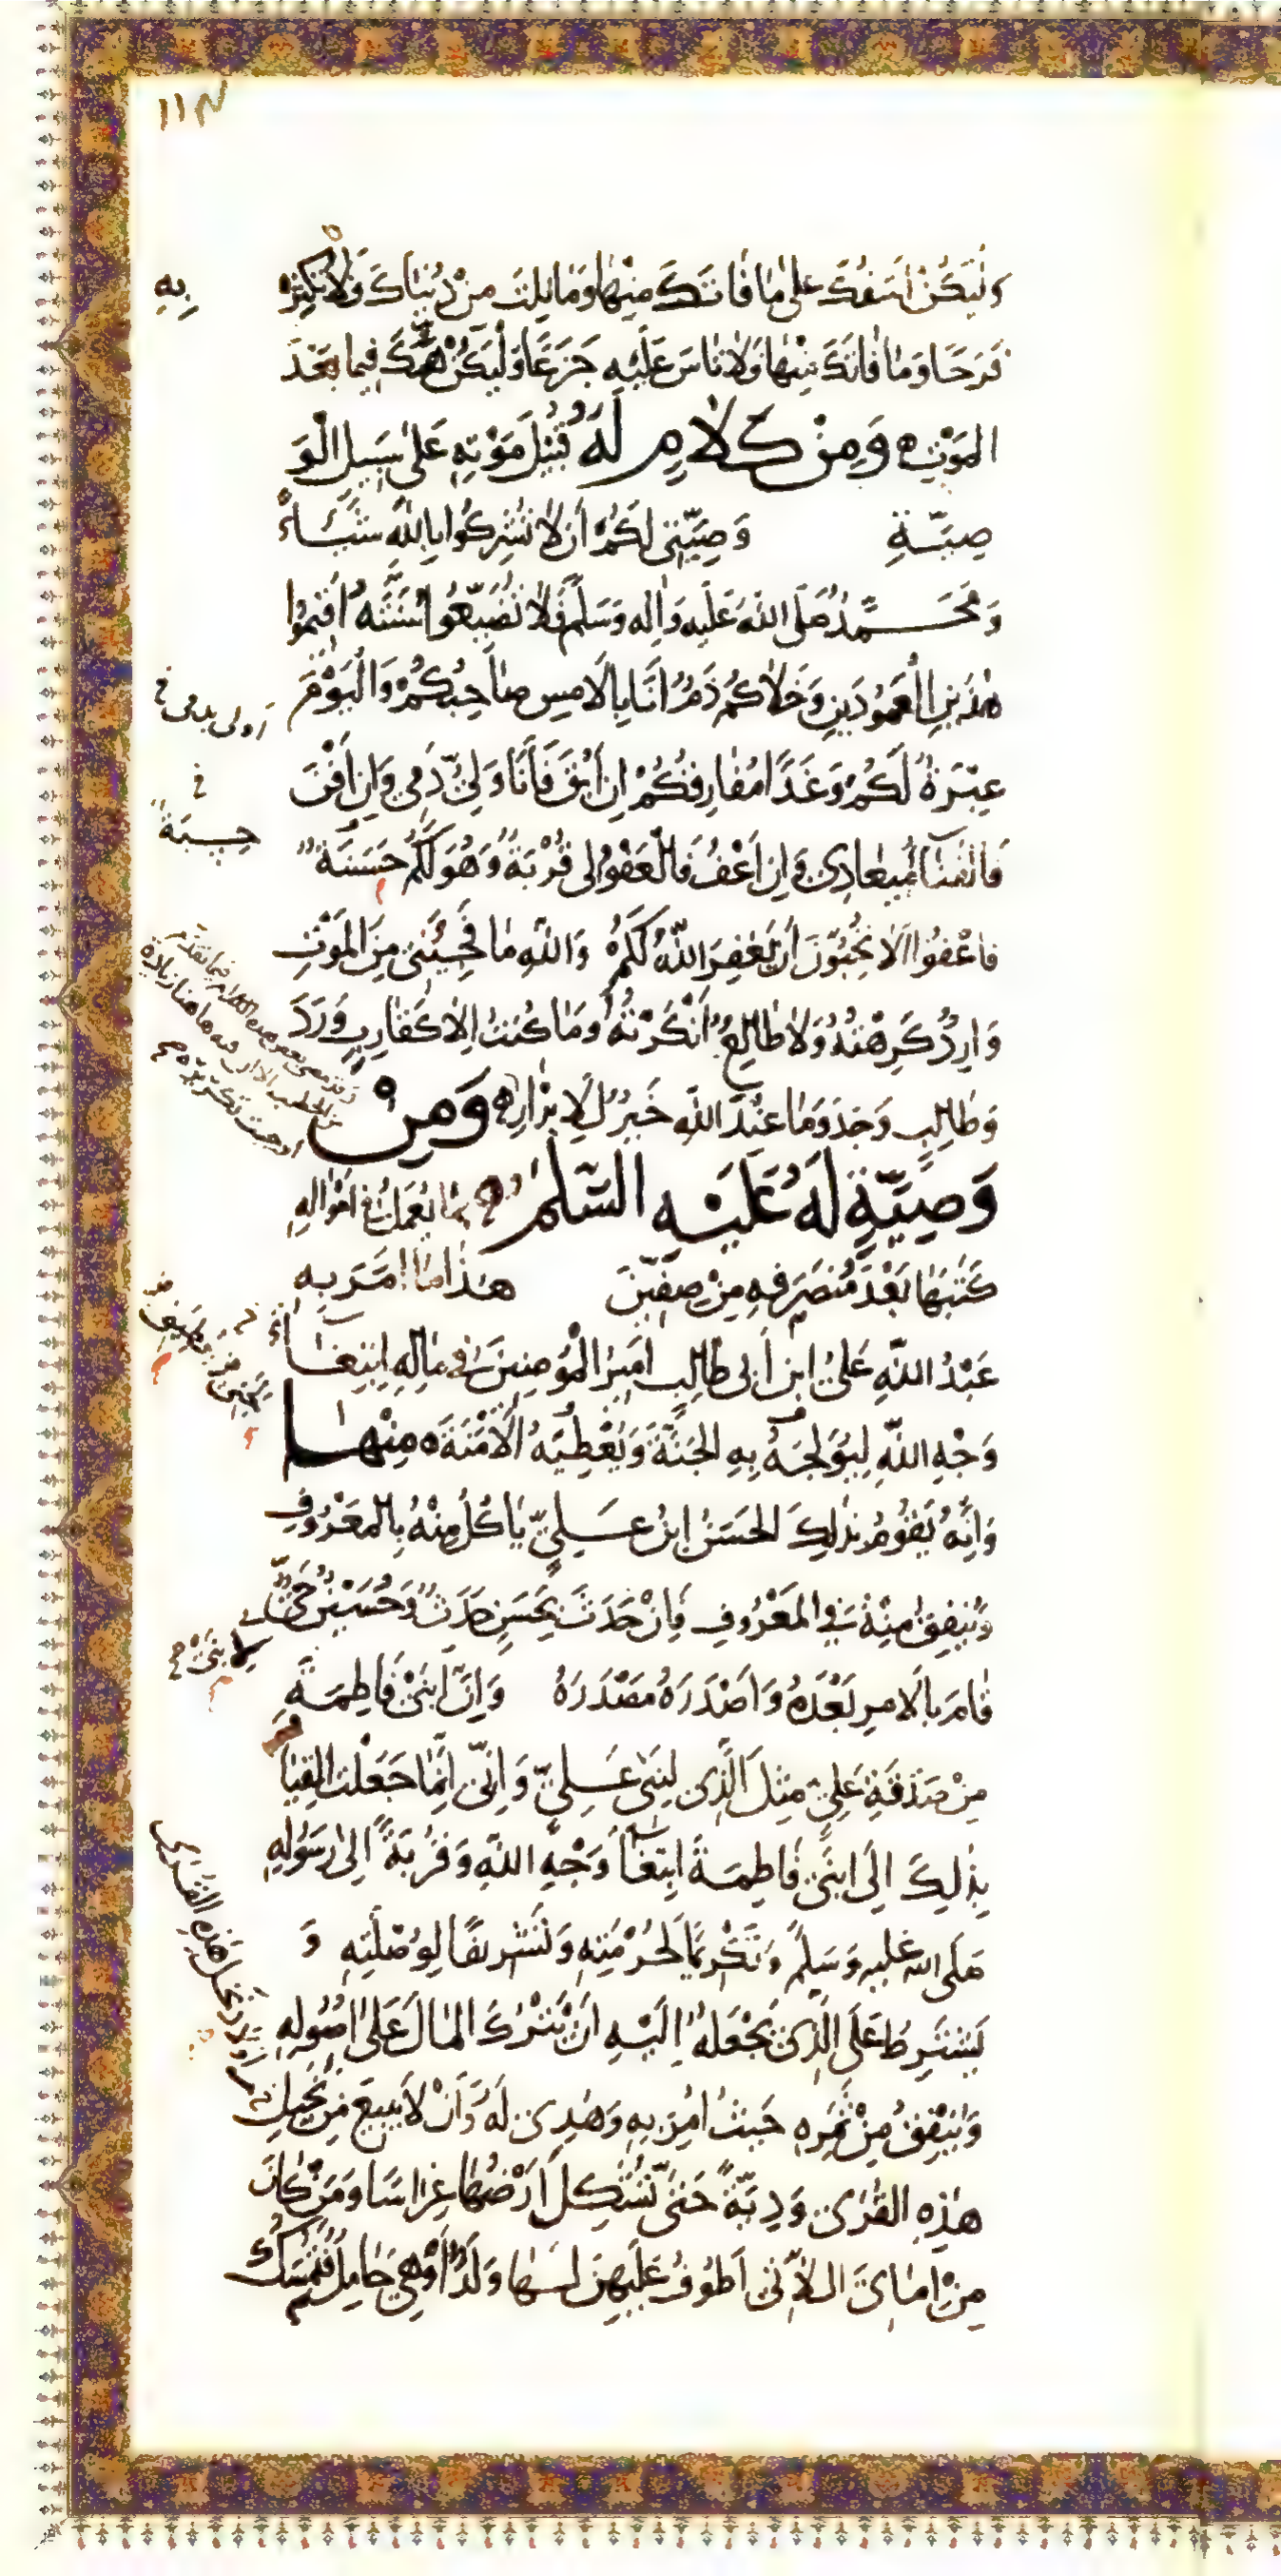 ١١٣
وَلْيَكُنْ اَسَفُكَ عَلٰى مٰا فٰاتَكَ مِنْهٰا وَمٰا نِلْتَ مِنْ دُنْيٰاكَ وَلٰا تُكْثِرْ
بِهِ
فَرَحًا وَمٰا فٰاتَكَ مِنْهٰا وَلٰا تٰاسَ عَلَيْهِ جَزَعًا وَلْيَكُنْ هَمُّكَ فِيمٰا بَعْدَ
المَوْتِ وَمِنْ كَلٰامٍ لَهُ قُبَيْلَ مَوْتِهِ عَلٰى سَبِيلِ الْوَ
صِيَّةِ وَصِيَّتِى لَكُمْ اَنْ لٰا تُشْرِكُوا بِاللّٰهِ شَيْـاءً
وَمُحَمَّدٌ صَلَّى اللّٰهُ عَلَيْهِ وَاٰلِه وَسَلَّمَ فَلٰا تُضَيِّعُوا سُنَّتَهُ اَقِيمُوا
هٰذَيْنِ الْعَمُودَيْنِ وَخَلٰاكُمْ ذَمٌّ اَنَا بِالْاَمْسِ صٰاحِبُكُمْ وَالْيَوْمَ
عِبْرَةٌ لَكُمْ وَغَدًا مُفٰارِقُكُمْ اِنْ اَبْقَ فَاَنَا وَلِىُّ دَمِى وَاِنْ اَفْنَ
فَالفَنٰآءُ مِيعٰادِى وَاِنْ اَعْفُ فَالْعَفْوُ لِى قُرْبَةٌ وَهُوَ لَكُمْ حَسَنَةٌ
حِسبَةٌ
فَاعْفُوا اَلٰا تُحِبُّونَ اَنْ يَغْفِرَ اللّٰهُ لَكُمْ وَاللّٰهِ مٰا فَجِئَنِى مِنَ الْمَوْتِ
وَارِدٌ كَرِهْتُهُ وَلٰا طٰالِعٌ اَنْكَرْتُهُ وَمٰا كُنْتُ اِلّٰا كَقٰارِبٍ وَرَدَ
وَطٰالِبٍ وَجَدَ وَمٰا عِنْدَ اللّٰهِ خَيْرٌ لِلْاَبْرٰارِ وَمِنْ
وَصِيَّةٍ لَهُ عَلَيْهِ السَّلٰمُ بِمٰا يُعْمَلُ فِى اَمْوٰالِهِ
كَتَبَهٰا بَعْدَ مُنْصَرَفِهِ مِنْ صِفِّينَ هٰذٰا مٰا اَمَرَ بِهِ
عَبْدُ اللّٰهِ عَلِىُّ ابْنُ اَبِى طٰالِبٍ اَمِيرُ الْمُؤمِنِينَ فِى مٰالِهِ اِبْتِغٰآءَ
وَجْهِ اللّٰهِ لِيُولِجَهُ بِهِ الْجَنَّةَ وَيُعْطِيَهُ الْاَمَنَةَ مِنْهٰا
وَاِنَّهُ يَقُومُ بِذٰلِكَ الْحَسَنُ ابْنُ عَلِىٍّ يٰاكُلُ مِنْهُ بِالْمَعْرُوفِ
وَيُنْفِقُ مِنْهُ فِى الْمَعْرُوفِ فَاِنْ حَدَثَ بِحَسَنٍ حَدَثٌ وَحُسَيْنٌ حَىٌّ
قٰامَ بِالْاَمْرِ بَعْدَهُ وَاَصْدَرَهُ مَصْدَرَهُ وَاِنَّ لِابْنَىْ فٰاطِمَةَ
مِنْ صَدَقَةِ عَلِىٍّ مِثْلَ الَّذِى لِبَنِى عَلِىٍّ وَاِنِّى اِنَّمٰا جَعَلْتُ الْقِيٰا
بِذٰلِكَ اِلَى ابْنَىْ فٰاطِمَةَ ابْتِغٰآءَ وَجْهِ اللّٰهِ وَقُرْبَةً اِلٰى رَسُولِهِ
صَلَّى اللّٰه عَلَيْهِ وَسَلَّمَ وَتَكْرِيمًا لِحُرْمَتِهِ وَتَشْرِيفًا لِوُصْلَتِهِ وَ
يَشْتَرِطُ عَلَى الَّذِى يَجْعَلُهُ اِلَيْهِ اَنْ يَتْرُكَ الْمٰالَ عَلٰى اُصُولِهِ
وَيُنْفِقَ مِنْ ثَمَرِهِ حَيْثُ اُمِرَ بِهِ وَهُدِىَ لَهُ وَاَنْ لٰا يَبِيعَ مِنْ نَخِيلِ
هٰذِهِ الْقُرٰى وَدِيَّةً حَتّٰى تُشْكِلَ اَرْضُهٰا غِرٰاسًا وَمَنْ كٰانَ
مِنْ اِمٰائِىَ اللّٰاتِى اَطُوفُ عَلَيْهِنَّ لَهٰا وَلَدٌ اَوْ هِىَ حٰامِلٌ فَتُمْسَكُ